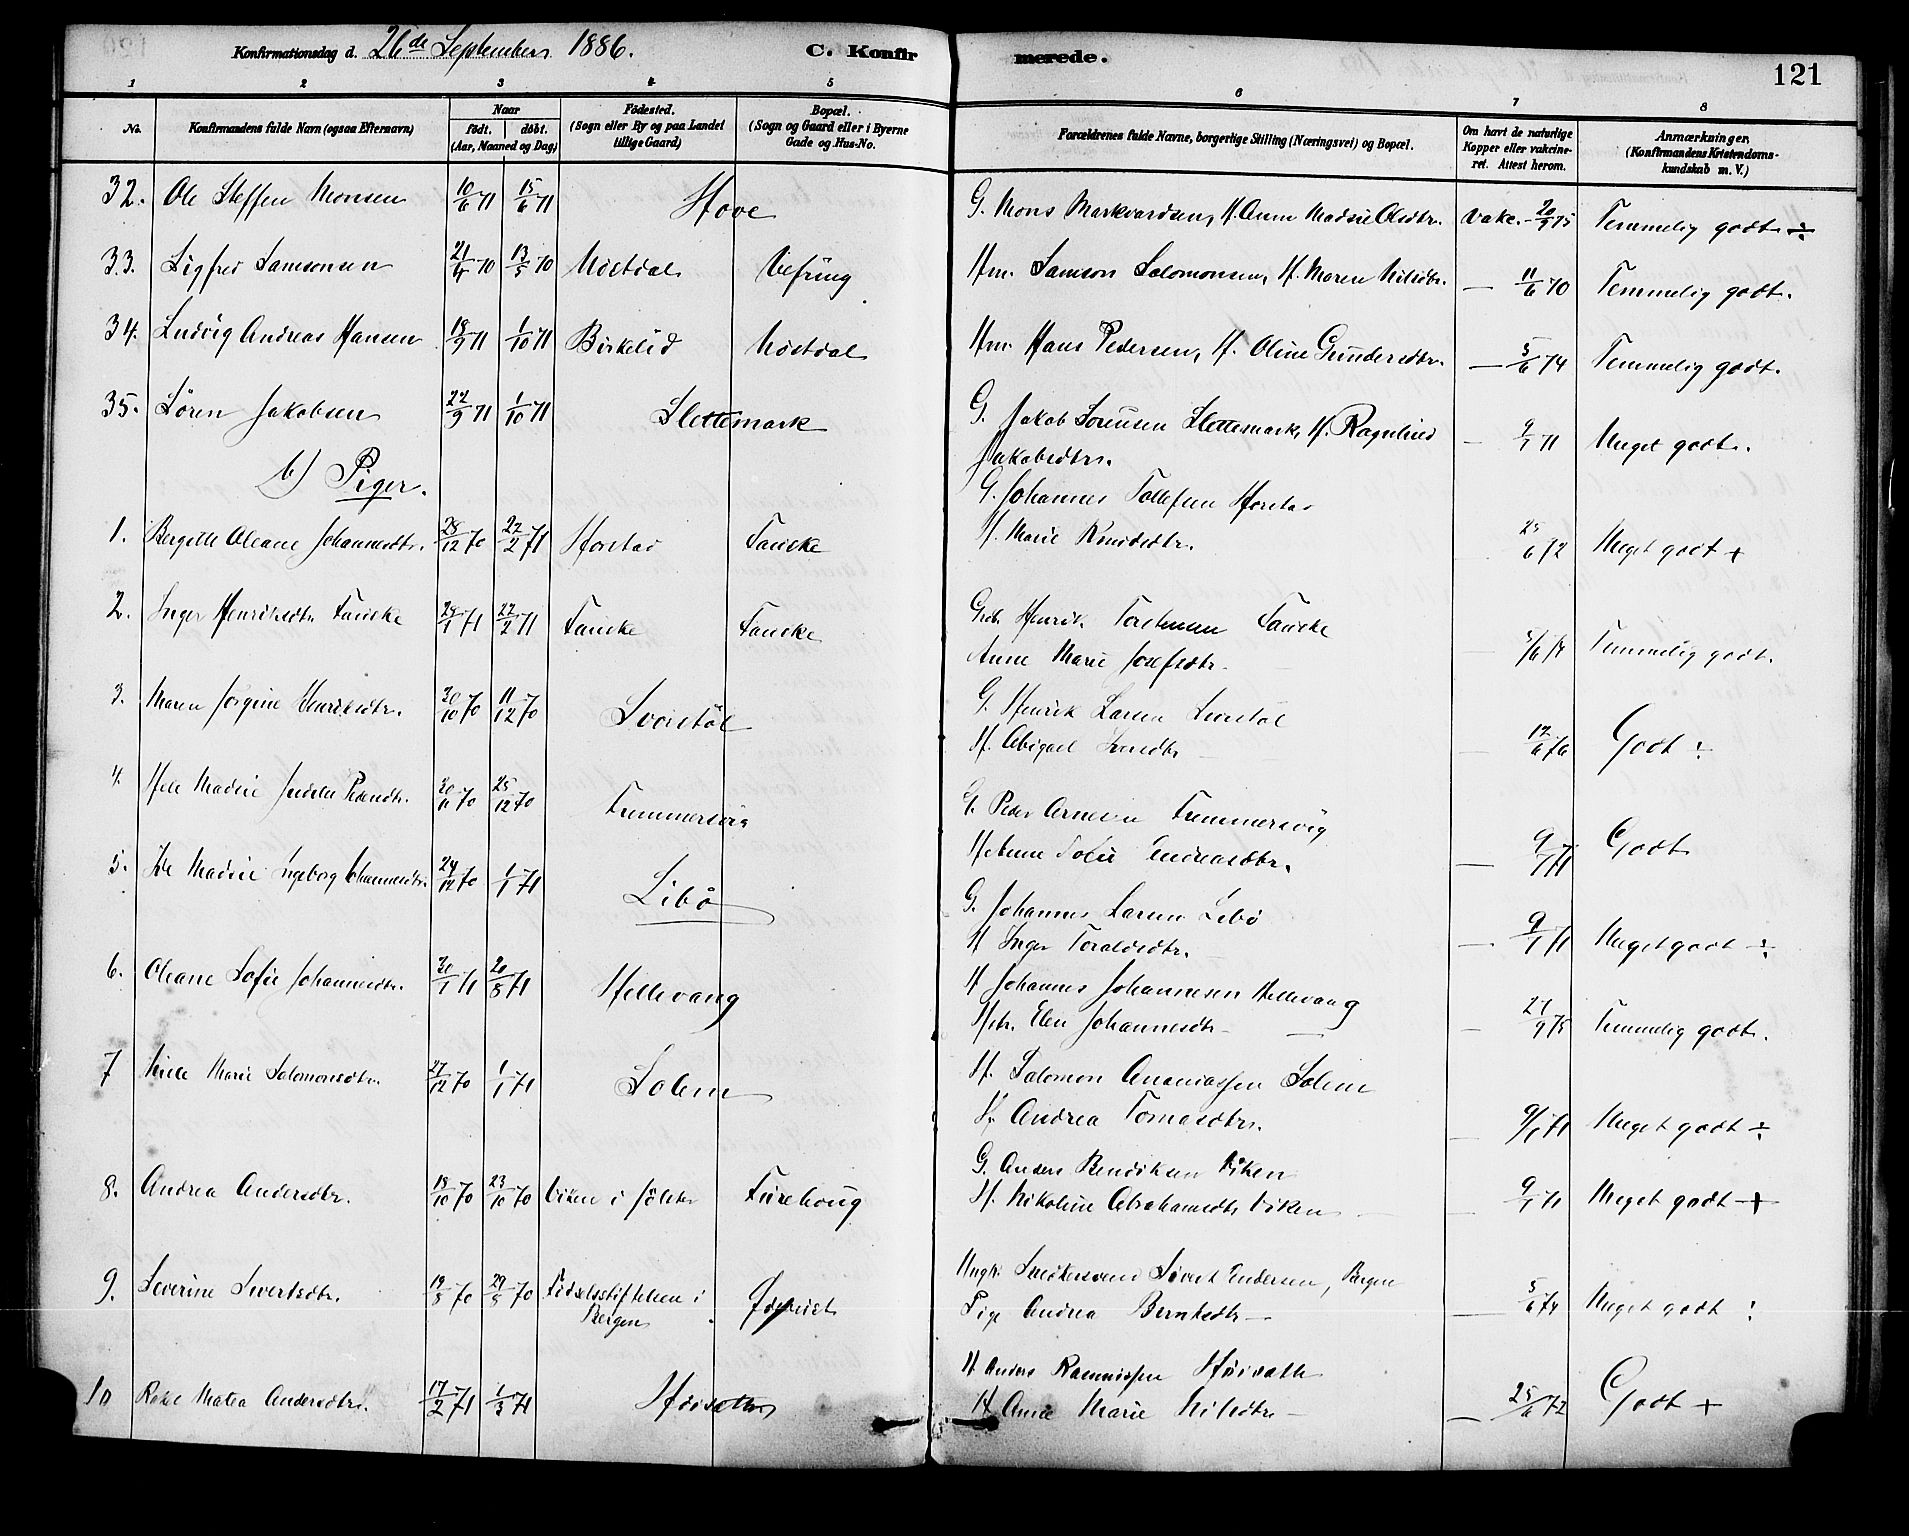 Konfirmationsdag d. 26de September 1886.
C. Konfirmerede.
121
1 2 3 4 5 6 7 8
No.
Konfirmandens fulde Navn (ogsaa Efternavn)
Naar
født. døbt.
(Aar, Maaned og Dag)
Fødested.
(Sogn eller By og paa Landet
tillige Gaard)
Bopæl.
(Sogn og Gaard eller i Byerne
Gade og Hus-No.
Forældrenes fulde Navne, borgerlige Stilling (Næringsvei) og Bopæl.
Om havt de naturlige
Kopper eller vakcine-
ret. Attest herom.
Anmærkninger.
(Konfirmandens Kristendoms-
kundskab m. V.)
32. Ole Steffen Monsen 10/6 71 15/6 71 Hove G. Mons Markvardsen, H. Anne Madsie Olsdtr. Vakc. - 20/9 75 Temmelig godt ÷
33. Sigfrid Samsonsen 21/4 70 13/5 70 Nostdal Vefring Hm. Samson Salomonsen, H. Maren Nilsdtr. — 11/6 70 Temmelig godt.
34. Ludvig Andreas Hansen 18/9 71 1/10 71 Birkelid Nostdal Hm. Hans Pedersen, H. Oline Gundersdtr. — 5/6 74 Temmelig godt.
35. Søren Jakobsen 22/9 71 1/10 71 Slettemark G. Jakob Sørensen Slettemark, H. Ragnhild
Jakobsdtr. - 9/1 71 Meget godt.
b) Piger.
1. Bergitte Oleane Johannesdtr. 28/12 70 22/2 71 Horstad Fauske G. Johannes Tollefsen Horstad
H. Marie Knudsdtr. 25/6 72 Meget godt +
2. Inger Henriksdtr Fauske 29/1 71 22/2 71 Fauske Fauske Grdb. Henrik Torstensen Fauske
Anne Marie Josefsdtr. 5/6 74 Temmelig godt.
3. Maren Jørgine Henriksdtr. 30/10 70 11/12 70 Svorstøl G. Henrik Larsen Svorstøl
H. Abigael 12/6 76 Godt ÷
4. Madsie Pedersdtr. 30/11 70 25/12 70 Tummersvig G. Peder Arnesen Tummersvig
H. Anne Sofie Andreasdtr. — 9/1 71 Godt
5. Madsie Ingeborg Johannesdtr. 24/12 70 1/1 71 Libø G. Johannes Larsen Libø
H Inger Toraldsdtr. — 9/1 71 Meget godt ÷
6. Oleane Sofie Johannesdtr. 30/1 71 20/5 71 Hellevang H Johannes Johannesen Hellevang
Hstr. Elen Johannesdtr — - 21/9 75 Temmelig godt.
7 Marie Salomonsdtr. 27/12 70 1/1 71 Solem H. Salomon Ananiassen Solem
H. Andrea Tomasdtr. — 9/1 71 Meget godt ÷
8. Andrea Andersdtr. 18/10 70 23/10 70 Viken i Jølster Furehoug G. Anders Bendiksen Viken
H. Nikoline Abrahamsdtr Viken — 9/1 71 Meget godt +
9. Severine Sivertsdtr. 19/8 70 29/8 70 Fødselsstiftelsen i
Bergen Ungk. Sivert Endersen, Bergen
Pige Andrea Berntsdtr — — 5/6 74 Meget godt :
10 Rakel Matea Andersdtr. 17/2 71 1/3 71 Høisæth H Anders Rasmussen Høisæth
H Anne Marie Nilsdtr — — 25/6 72 Godt +